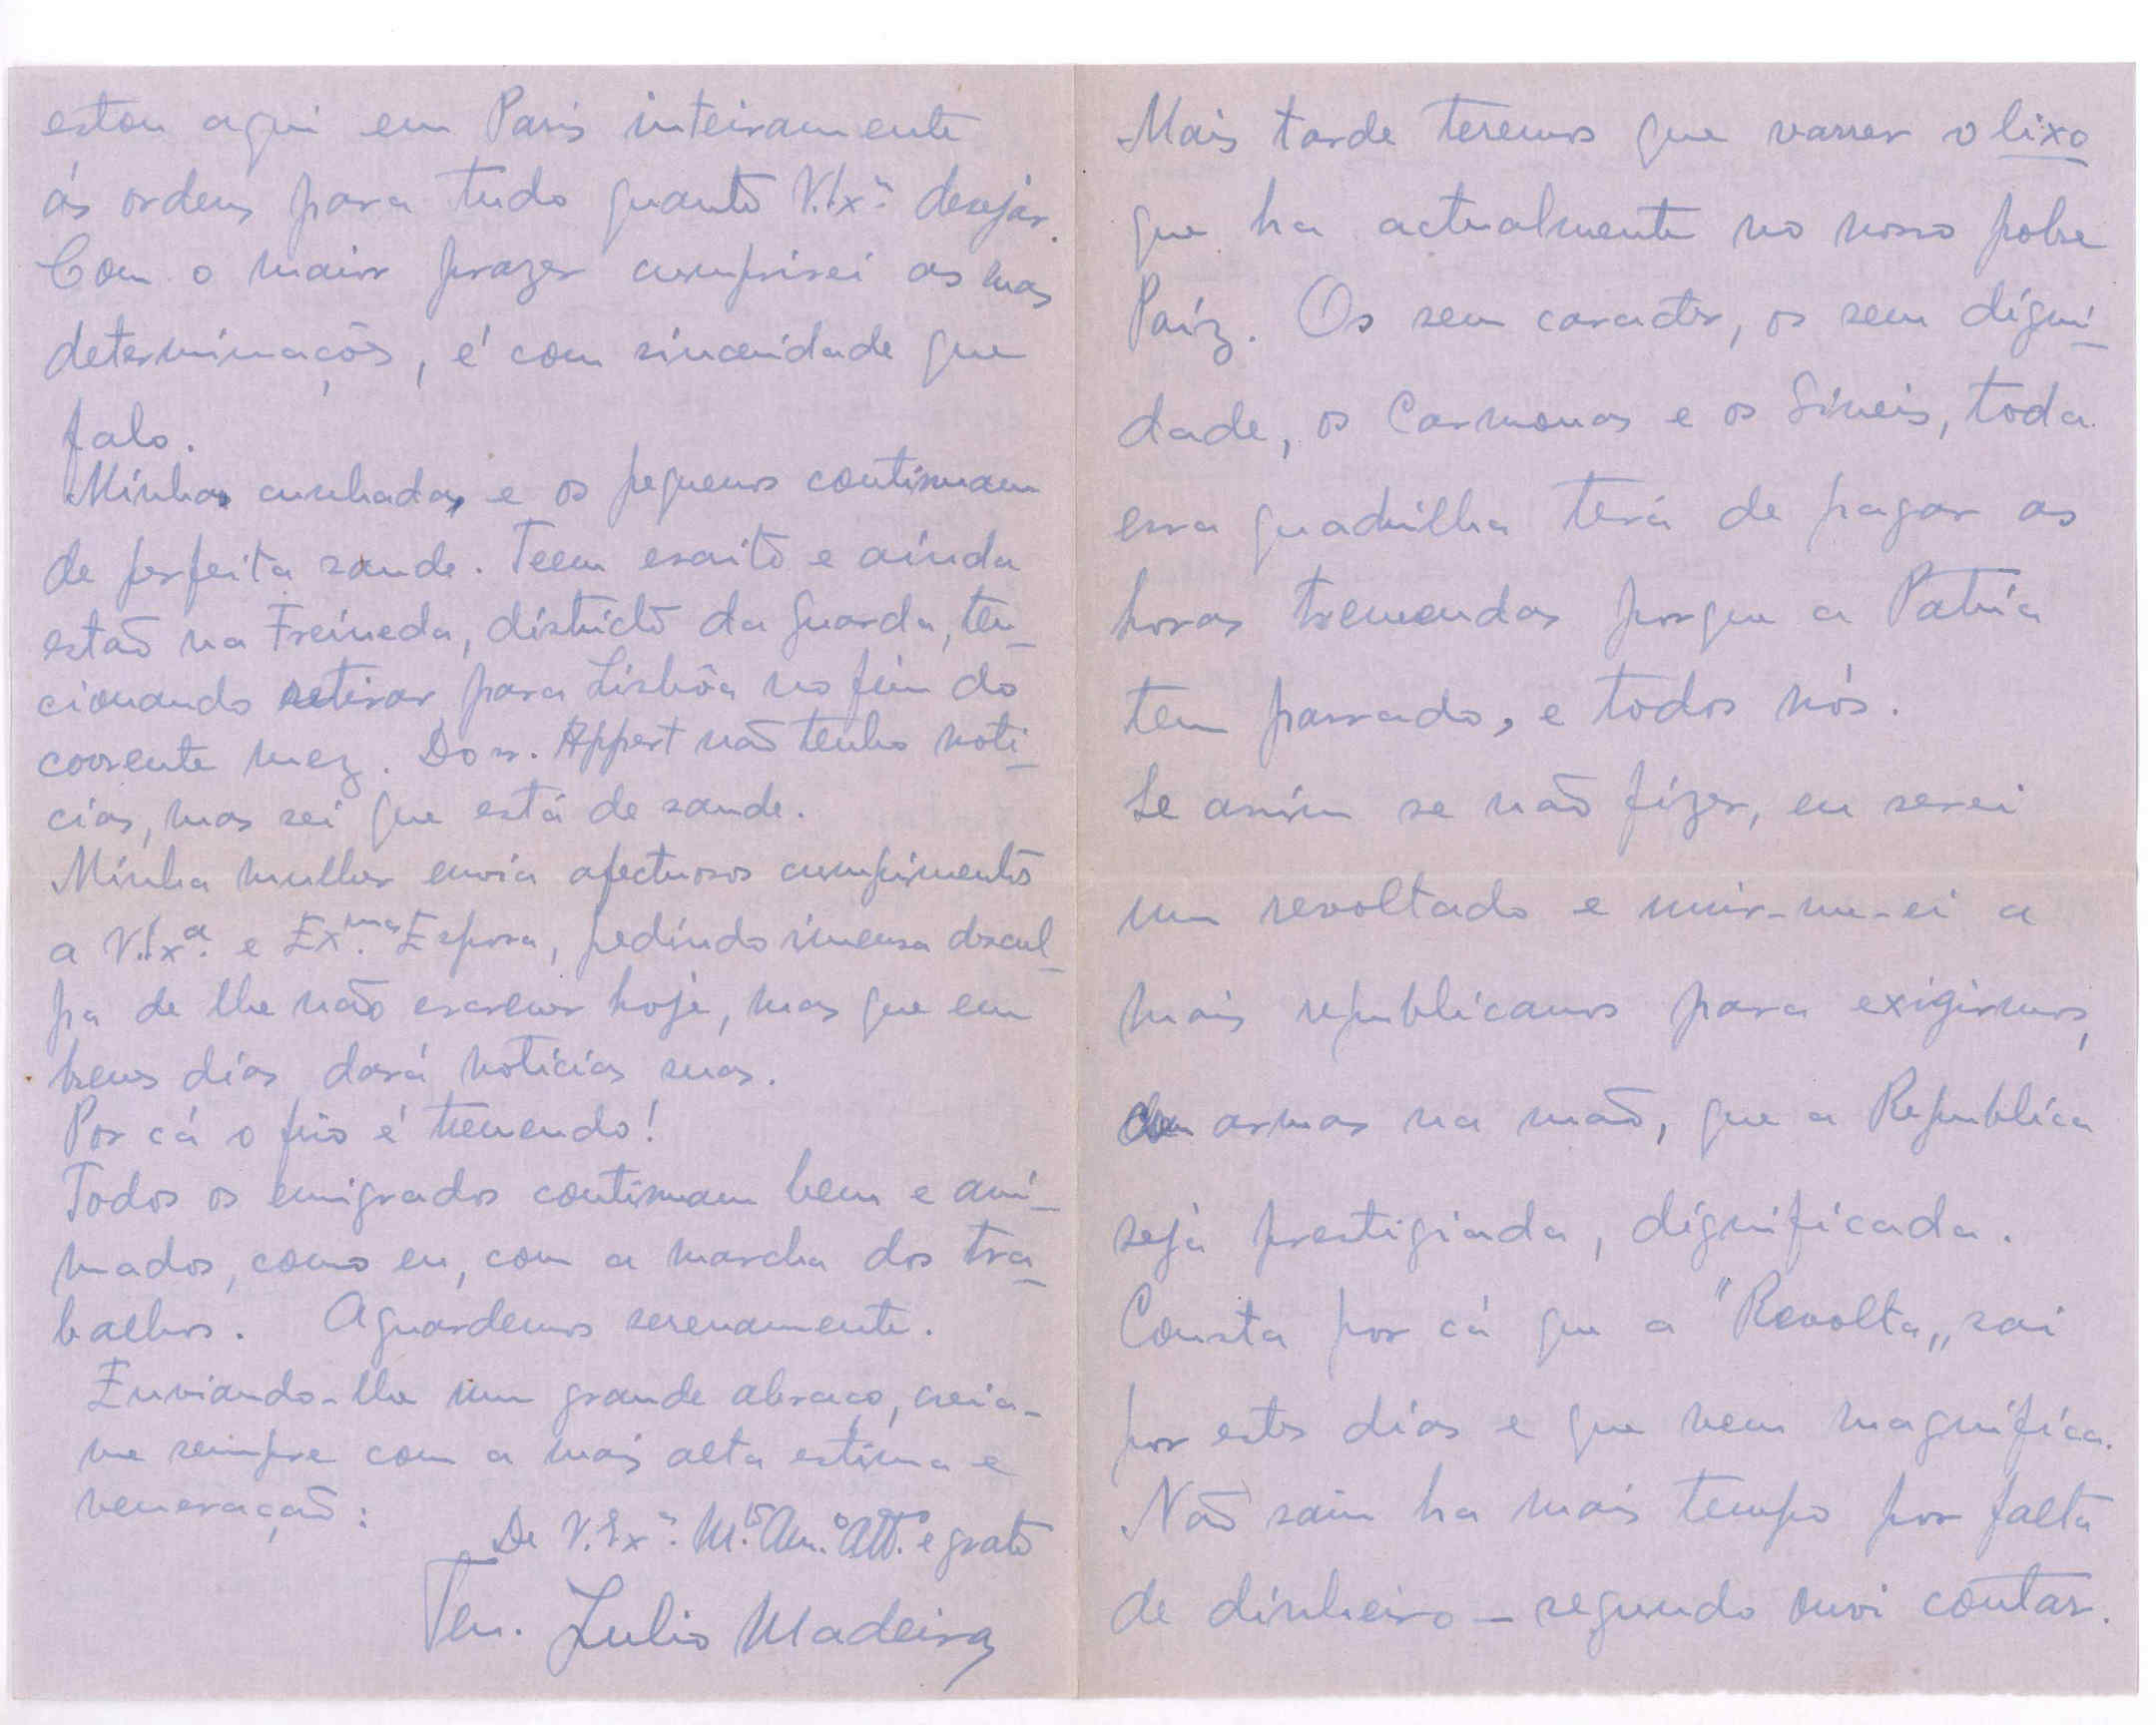 estou aqui em Paris inteiramente
ás ordens para tudo quanto V.Exª desejar.
Com o maior prazer cumprirei as suas
determinações, é com sinceridade que
falo.
Minhas cunhadas e os pequenos continuam
de perfeita saude. Teem escrito e ainda
estão na Freineda, districto da Guarda, ten-
cionando retirar para Lisbôa no fim do
corrente mez. Do sr. Appert não tenho noti-
cias, mas sei que está de saude.
Minha mulher envia afectuosos cumprimentos
a V.Exª. e Ex.mas Esposa, pedindo imensa descul-
pa de lhe não escrever hoje, mas que em
breves dias dará noticias suas.
Por cá o frio é tremendo!
Todos os emigrados continuam bem e ani-
mados, como eu, com a marcha dos tra-
balhos. Aguardemos serenamente.
Enviando-lhe um grande abraço, creia-
me sempre com a mais alta estima e
veneração:
De V.Exª. M.to Am.o Att.o e grato
Ten. Julio Madeira
Mais tarde teremos que varrer o lixo
que ha actualmente no nosso pobre
Paíz. Os sem caracter, os sem digni-
dade, os Carmonas e os Sineis, toda
essa quadrilha terá de pagar as
horas tremendas porque a Patria
tem passado, e todos nós.
Se assim se não fizer, eu serei
um revoltado e unir-me-ei a
mais republicanos para exigirmos,
de armas na mão, que a Republica
seja prestigiada, dignificada.
Consta por cá que a "Revolta„ sai
por estes dias e que vem magnifica.
Não saiu ha mais tempo por falta
de dinheiro - segundo ouvi contar.